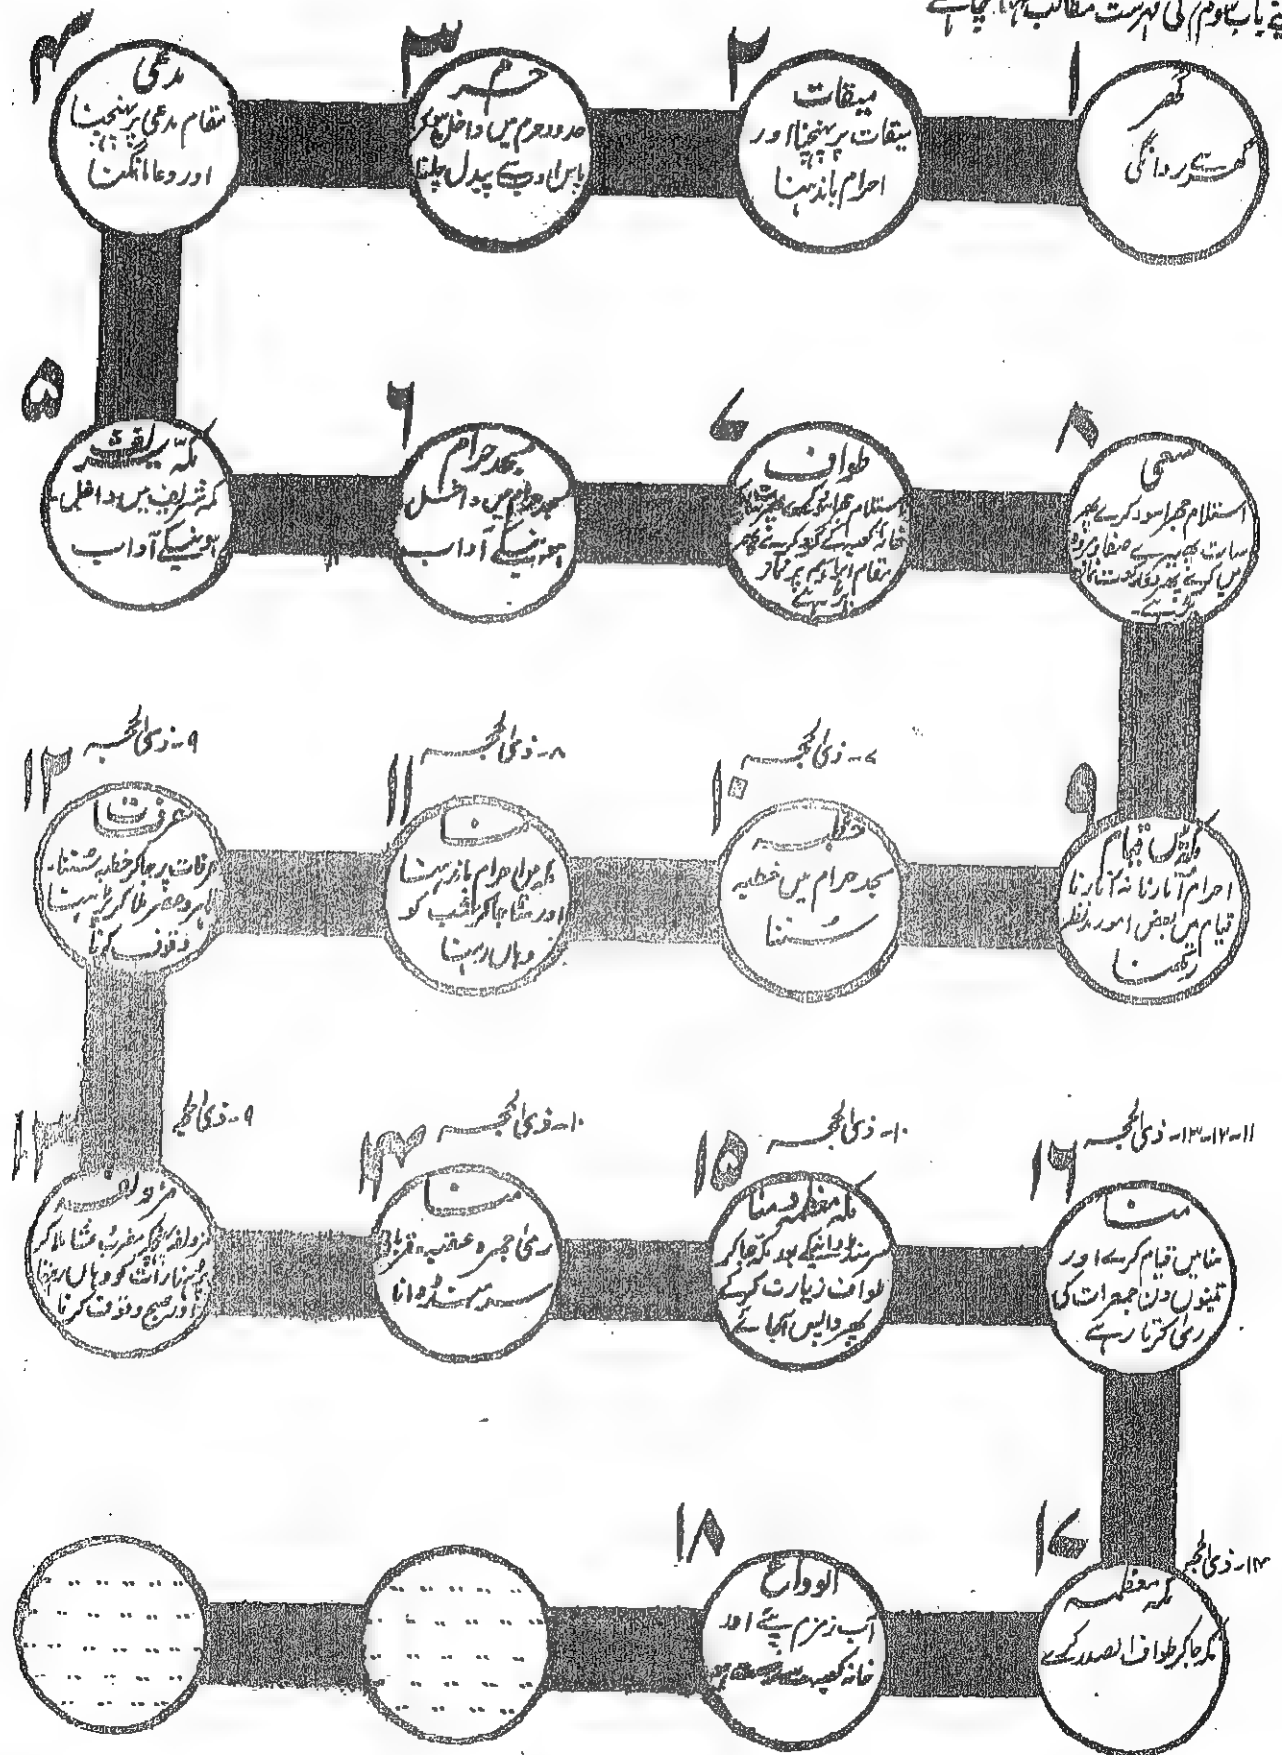 باب سوم کی فہرست مطالب
۱
گھر
گھر سے روانگی
۲
میقات
میقات پر پہنچنا اور
احرام باندہنا
۳
حرم
حدود حرم میں داخل ہو کر
پیدل چلنا
۴
مدعی
مقام مدعی پر پہنچنا
اور دعا مانگنا
۵
مکہ شریف
مکہ شریف میں داخل
ہونیکے آداب
۶
مسجد حرام
مسجد حرام میں داخل
ہونیکے آداب
۷
طواف
استلام حجر اسود کرے پھر
خانہ کعبہ کے گرد کرے پھر
مقام ابراہیم پر نماز
پڑہے
۸
سعی
استلام حجر اسود کرے پھر
سات پھیرے صفا و مروہ
میں کرے پھر
۹
مکہ میں قیام
احرام اتارنا نہ اتارنا
قیام میں بعض امور مدنظر
رکھنا
۱۰
۷-ذی الحجہ
خطبہ
مسجد حرام میں خطبہ
سننا
۱۱
۸-ذی الحجہ
منا
احرام باندہنا
اور منا جا کر شب کو
وہاں رہنا
۱۲
۹-ذی الحجہ
عرفات
عرفات پر جا کر خطبہ سننا-
ظہر و عصر ملا کر پڑہنا
وقوف کرنا
۱۳
۹-ذی الحجہ
مزدلفہ
مغرب عشا ملا کر
پڑہنا رات کو وہاں رہنا
اور صبح وقوف کرنا
۱۴
۱۰-ذی الحجہ
منا
رمی جمرہ عقبہ-قربانی
سر منڈوانا
۱۵
۱۰-ذی الحجہ
مکہ معظمہ و منا
سر منڈوانیکے بعد مکہ جا کر
طواف زیارت کرے
پھر واپس آجائے
۱۶
۱۱-۱۲-۱۳-ذی الحجہ
منا
منا میں قیام کرے اور
تینوں دن جمعرات کی
رمی کرتا رہے
۱۷
ذی الحجہ
مکہ معظمہ
مکہ جا کر طواف الصدر کرے
۱۸
الوداع
آب زمزم پئے اور
خانہ کعبہ سے